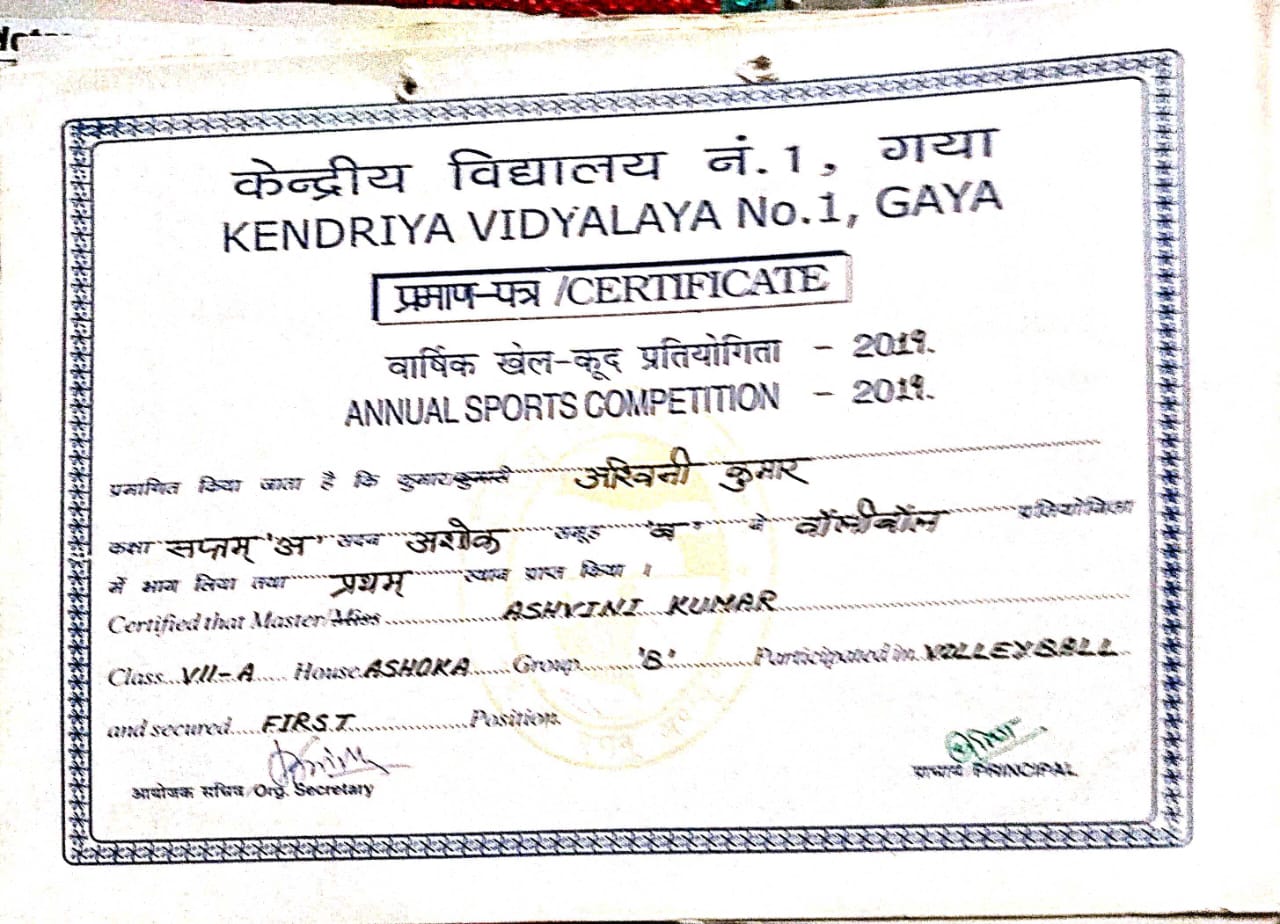 केन्द्रीय विद्यालय नं.1, गया
KENDRIYA VIDYALAYA No.1, GAYA
प्रमाण-पत्र /CERTIFICATE
वार्षिक खेल-कूद प्रतियोगिता - 2019.
ANNUAL SPORTS COMPETITION - 2019.
प्रमाणित किया जाता है कि कुमार/कुमारी अश्विनी कुमार
कक्षा सप्तम् 'अ' सदन अशोक समूह 'ब' ने वॉलीबॉल प्रतियोगिता
में भाग लिया तथा प्रथम् स्थान प्राप्त किया ।
Certified that Master/Miss ASHVINI KUMAR
Class VII-A House ASHOKA Group 'B' Participated in VOLLEYBALL
and secured FIRST Position.
आयोजक सचिव/Org. Secretary
प्राचार्य PRINCIPAL